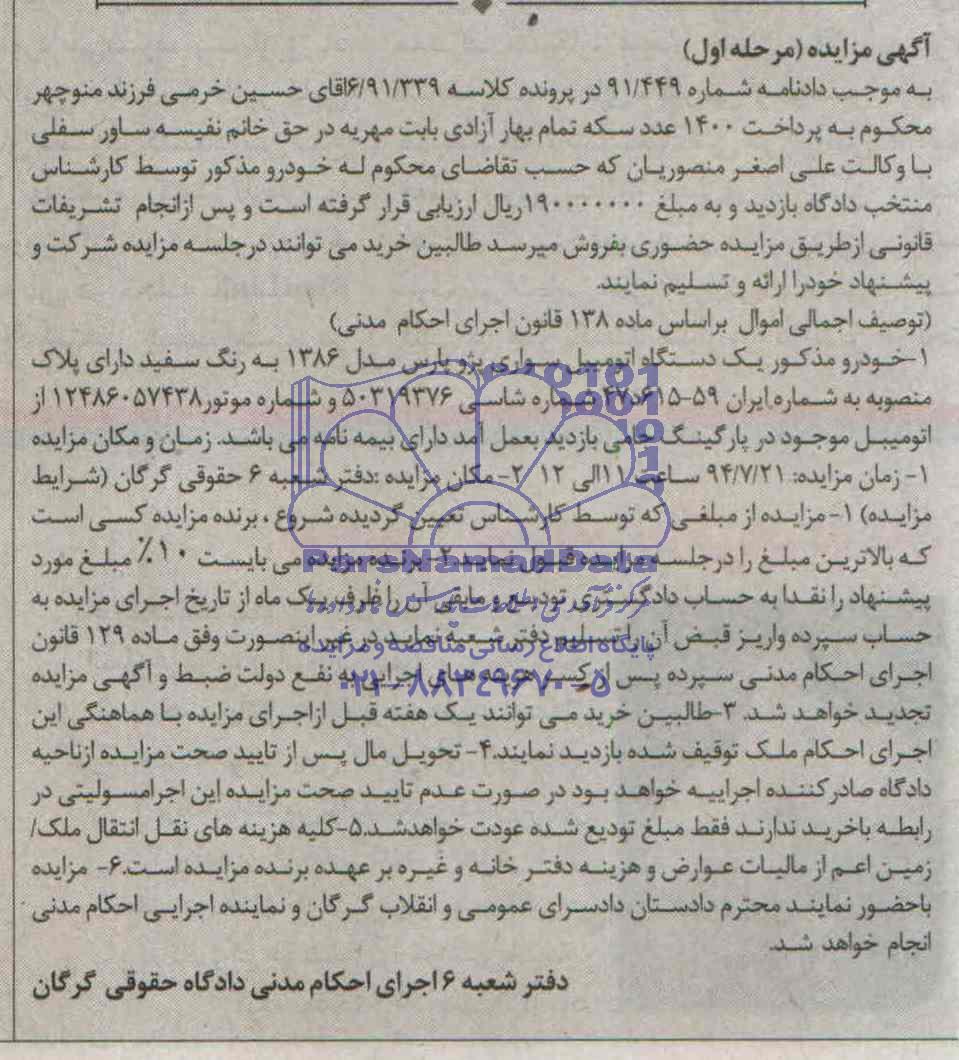 آگهی مزایده (مرحله اول)
به موجب دادنامه شماره ۹۱/۴۴۹ در پرونده کلاسه ۶/۹۱/۳۳۹اقای حسین خرمی فرزند منوچهر
محکوم به پرداخت ۱۴۰۰ عدد سکه تمام بهار آزادی بابت مهریه در حق خانم نفیسه ساور سفلی
با وکالت علی اصغر منصوریان که حسب تقاضای محکوم له خودرو مذکور توسط کارشناس
منتخب دادگاه بازدید و به مبلغ ۱۹۰۰۰۰۰۰۰ریال ارزیابی قرار گرفته است و پس ازانجام تشریفات
قانونی ازطریق مزایده حضوری بفروش میرسد طالبین خرید می توانند درجلسه مزایده شرکت و
پیشنهاد خودرا ارائه و تسلیم نمایند.
(توصیف اجمالی اموال براساس ماده ۱۳۸ قانون اجرای احکام مدنی)
۱-خودرو مذکور یک دستگاه اتومبیل سواری پژو پارس مدل ۱۳۸۶ به رنگ سفید دارای پلاک
منصوبه به شماره ایران ۵۹-۶۱۵د۴۷ شماره شاسی ۵۰۳۱۹۳۷۶ و شماره موتور۱۲۴۸۶۰۵۷۴۳۸ از
اتومبیل موجود در پارگینگ بازدید بعمل آمد دارای بیمه نامه می باشد. زمان و مکان مزایده
۱- زمان مزایده: ۹۴/۷/۲۱ ساعت ۱۱الی ۱۲ ۲- مکان مزایده :دفتر شعبه ۶ حقوقی گرگان (شرایط
مزایده) ۱-مزایده از مبلغی که توسط کارشناس تعیین گردیده شروع ، برنده مزایده کسی است
که بالاترین مبلغ را درجلسه مزایده قبول نماید.۲- برنده مزایده می بایست ۱۰٪ مبلغ مورد
پیشنهاد را نقدا به حساب دادگستری تودیع و مابقی آن را ظرف یک ماه از تاریخ اجرای مزایده به
حساب سپرده واریز قبض آن را تسلیم دفتر شعبه نماید در غیر اینصورت وفق ماده ۱۲۹ قانون
اجرای احکام مدنی سپرده پس از کسر هزینه های اجرایی به نفع دولت ضبط و آگهی مزایده
تجدید خواهد شد. ۳-طالبین خرید می توانند یک هفته قبل ازاجرای مزایده با هماهنگی این
اجرای احکام ملک توقیف شده بازدید نمایند.۴- تحویل مال پس از تایید صحت مزایده ازناحیه
دادگاه صادرکننده اجراییه خواهد بود در صورت عدم تایید صحت مزایده این اجرامسولیتی در
رابطه باخرید ندارند فقط مبلغ تودیع شده عودت خواهدشد.۵-کلیه هزینه های نقل انتقال ملک/
زمین اعم از مالیات عوارض و هزینه دفتر خانه و غیره بر عهده برنده مزایده است.۶- مزایده
باحضور نمایند محترم دادستان دادسرای عمومی و انقلاب گرگان و نماینده اجرایی احکام مدنی
انجام خواهد شد.
دفتر شعبه ۶ اجرای احکام مدنی دادگاه حقوقی گرگان
ParsNamadData
پایگاه اطلاع رسانی مناقصه و مزایده
۰۲۱-۸۸۳۴۹۶۷۰-۵